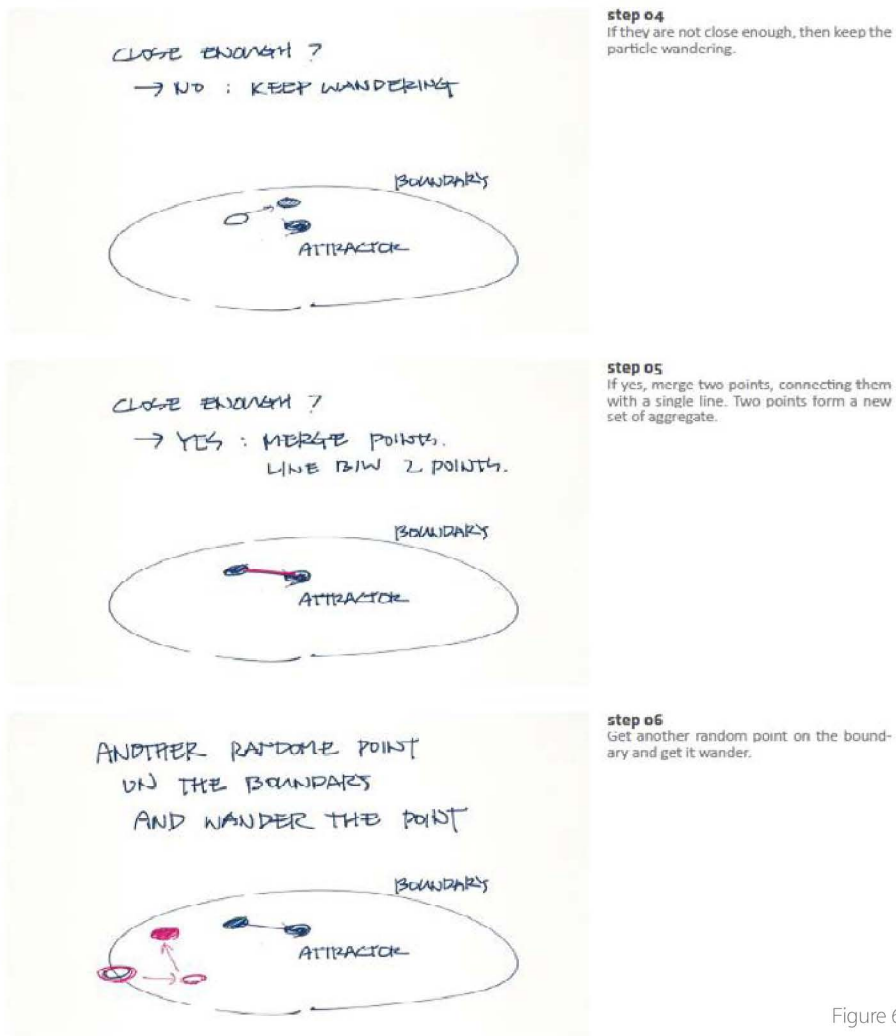 CLOSE ENOUGH ?
→ NO : KEEP WANDERING
BOUNDARY
ATTRACTOR
step 04
If they are not close enough, then keep the
particle wandering.
CLOSE ENOUGH ?
→ YES : MERGE POINTS.
LINE B/W 2 POINTS.
BOUNDARY
ATTRACTOR
step 05
If yes, merge two points, connecting them
with a single line. Two points form a new
set of aggregate.
ANOTHER RANDOME POINT
ON THE BOUNDARY
AND WANDER THE POINT
BOUNDARY
ATTRACTOR
step 06
Get another random point on the bound-
ary and get it wander.
Figure 6